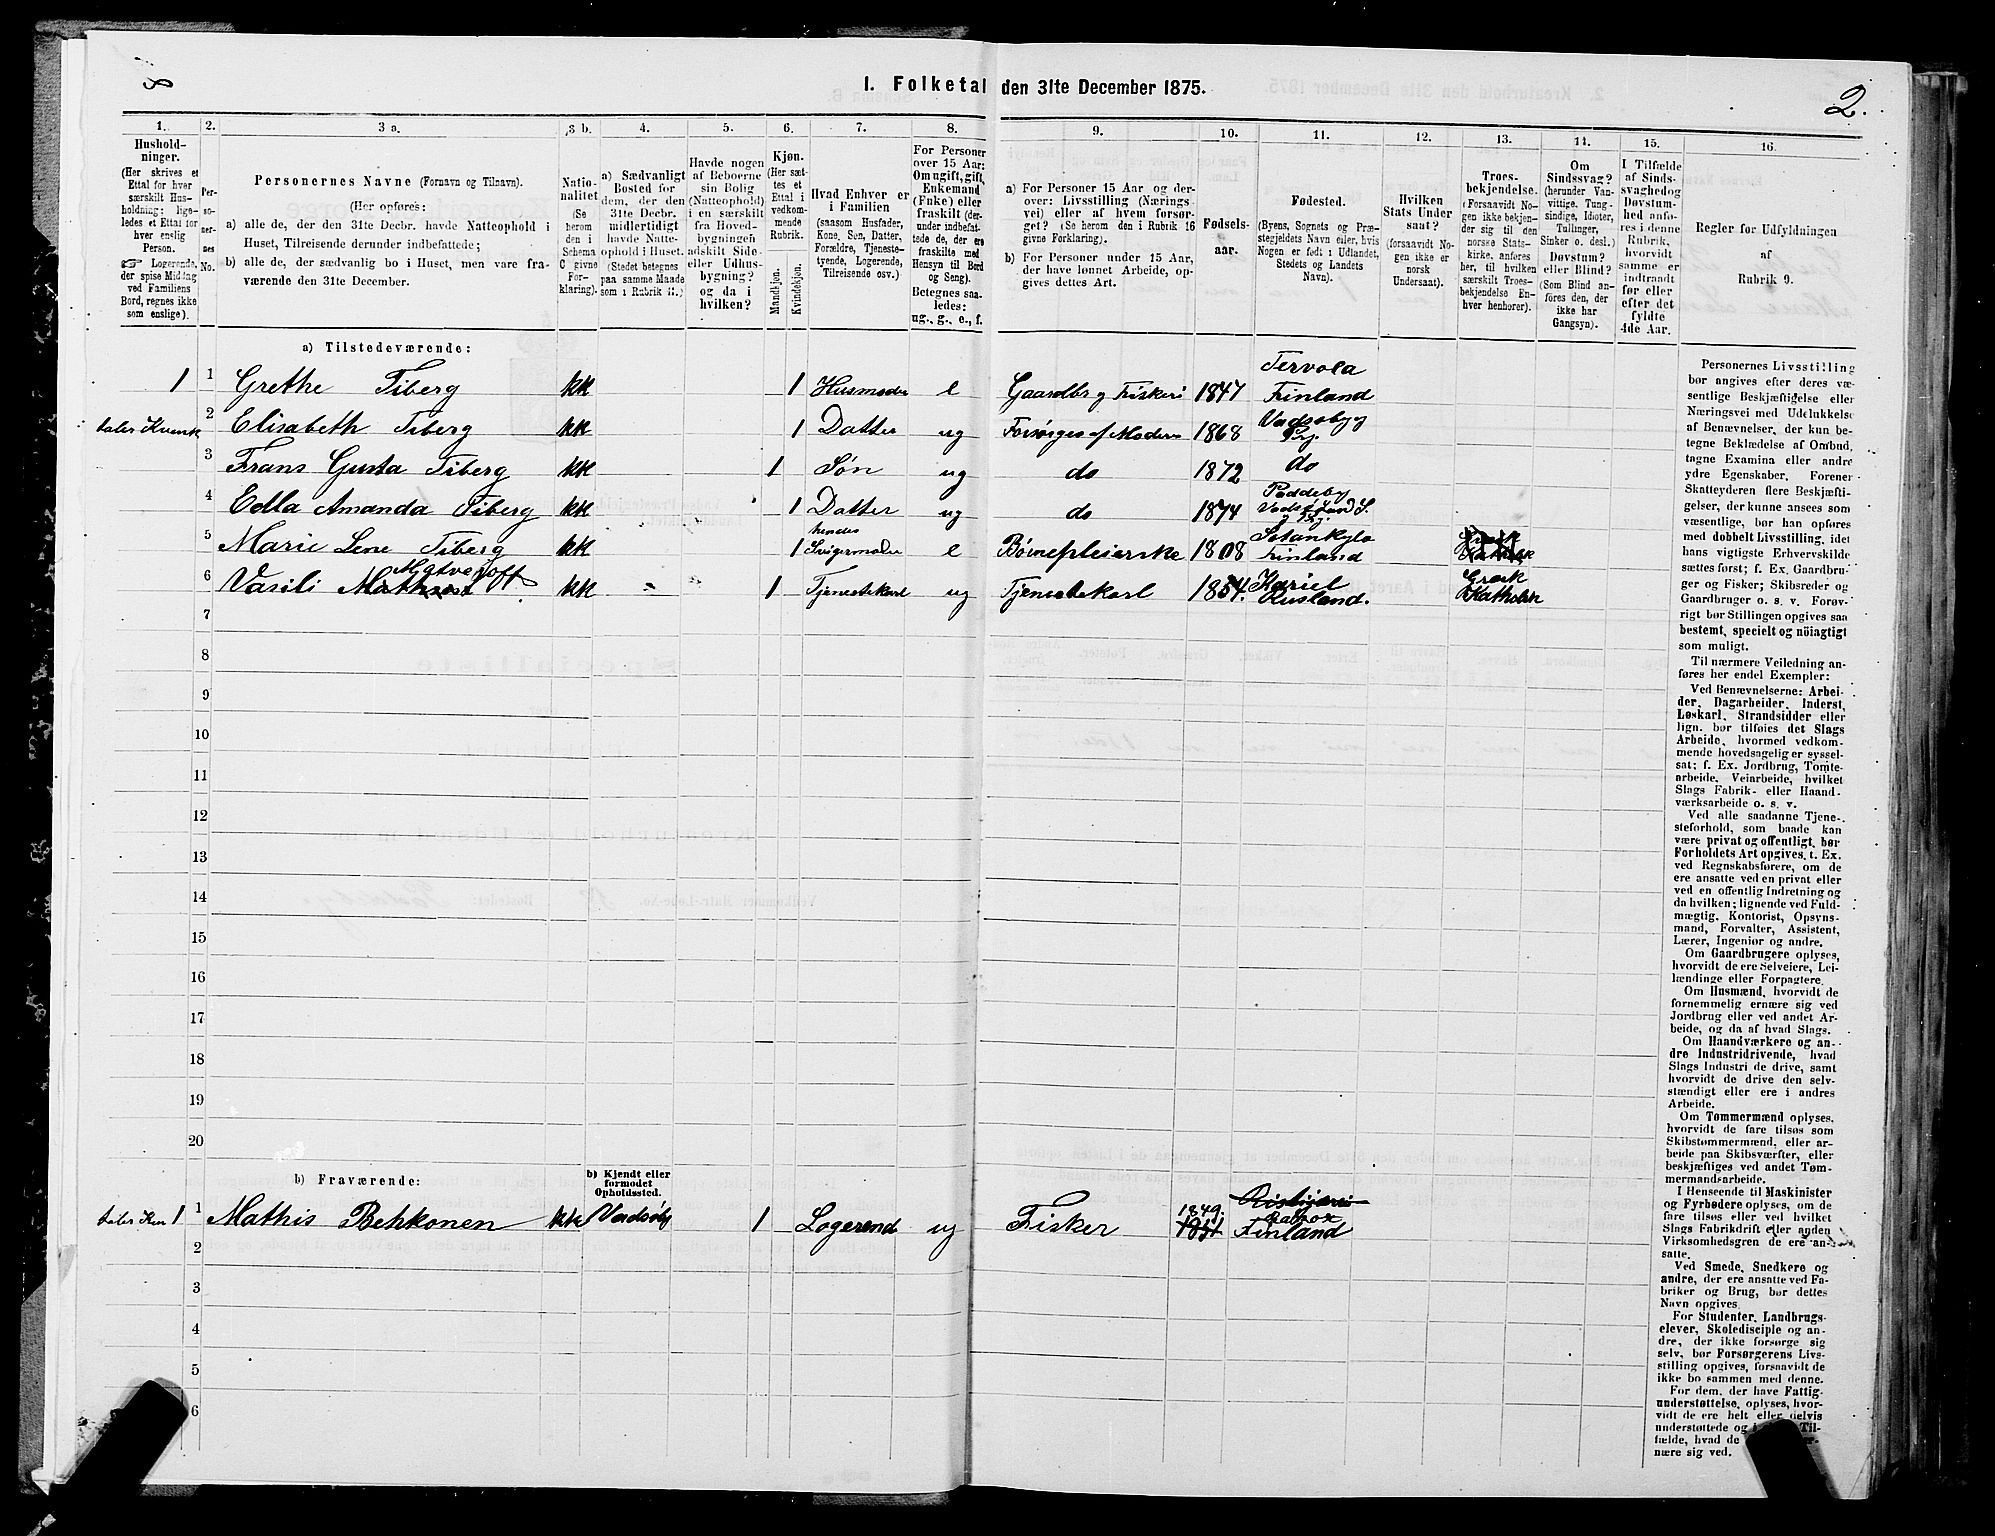 8
1. Folketal den 31te December 1875.
2.
1. 2. 3 a. 3 b. 4. 5. 6. 7. 8. 9. 10. 11. 12. 13. 14. 15. 16.
Hushold-
ninger.
(Her skrives et
Ettal for hver
særskilt Hus-
holdning; lige-
ledes et Ettal for
hver enslig
Person.
☞ Logerende,
der spise Middag
ved Familiens
Bord, regnes ikke
som enslige).
Per-
so-
ner-
nes
No.
Personernes Navne (Fornavn og Tilnavn).
(Her opføres:
a) alle de, der den 31te Decbr. havde Natteophold i
Huset, Tilreisende derunder indbefattede;
b) alle de, der sædvanlig bo i Huset, men vare fra-
værende den 31te December.
Natio-
nalitet
(Se
herom
den i
Schema
C givne
For-
klaring).
a) Sædvanligt
Bosted for
dem, der den
31te Decbr.
midlertidigt
havde Natte-
ophold i Huset.
(Stedet betegnes
paa samme Maade
som i Rubrik 11.)
Havde nogen
af Beboerne
sin Bolig
(Natteophold)
i en særskilt
fra Hoved-
bygningen
adskilt Side-
eller Udhus-
bygning?
og da i
hvilken?
Kjøn.
(Her sæt-
tes et
Ettal i
vedkom-
mende
Rubrik.
Mandkjøn.
Kvindekjøn.
Hvad Enhver er
i Familien
(saasom Husfader,
Kone, Søn, Datter,
Forældre, Tjeneste-
tyende, Logerende,
Tilreisende osv.)
For Personer
over 15 Aar:
Om ugift, gift,
Enkemand
(Enke) eller
fraskilt (der-
under indbefat-
tede de, der ere
fraskilte med
Hensyn til Bord
og Seng).
Betegnes saa-
ledes:
ug., g., e., f.
a) For Personer 15 Aar og der-
over: Livsstilling (Nærings-
vei) eller af hvem forsør-
get? (Se herom den i Rubrik 16
givne Forklaring).
b) For Personer under 15 Aar,
der have lønnet Arbeide, op-
gives dettes Art.
Fødsels-
aar.
Fødested.
(Byens, Sognets og Præ-
stegjeldets Navn eller, hvis
Nogen er født i Udlandet,
Stedets og Landets
Navn).
Hvilken
Stats Under-
saat?
(forsaavidt No-
gen ikke er
norsk
Undersaat).
Troes-
bekjendelse.
(Forsaavidt No-
gen ikke bekjen-
der sig til den
norske Stats-
kirke, anføres
her, til hvilken
særskilt Troes-
bekjendelse En-
hver henhører).
Om
Sindssvag?
(herunder Van-
vittige, Tung-
sindige, Idioter,
Tullinger,
Sinker o. desl.)
Døvstum?
eller Blind?
(Som Blind an-
føres den, der
ikke har
Gangsyn).
I Tilfælde
af Sinds-
svaghed og
Døvstum-
hed anfø-
res i denne
Rubrik,
hvorvidt
samme er
indtraadt
før eller
efter det
fyldte
4de Aar.
Regler for Udfyldningen
af
Rubrik 9.
a) Tilstedeværende:
1 1 Grethe Tiberg kk 1 Husmoder e Gaardbr og Fiskeri 1847 Tervola Finland
taler Kvensk 2 Elisabeth Tiberg kk 1 Datter ug Forsørges af Moderen 1868 Vadsøby Pgj.
3 Frans Gusta Tiberg kk 1 Søn ug do 1872 do
4 Edla Amanda Tiberg kk 1 Datter ug do 1874 Paddeby
5 Marie Lene Tiberg kk 1 hendes Svigermoder e Børnepleierske 1808 Finland Græsk Katholsk
6 Vasili Matvejoff kk 1 Tjenestekarl ug Tjenestekarl 1854. Kariel Rusland. Græsk Katholsk
7
8
9
10
11
12
13
14
15
16
17
18
19
20
b) Fraværende:
b) Kjendt eller
formodet
Opholdssted.
1 1 Mathis Behkonen kk Vadsøby 1 Logerend ug Fisker 1849. 1851 Finland
2
3
4
5
6
Personernes Livsstilling
bør angives efter deres væ-
sentlige Beskjæftigelse eller
Næringsvei med Udelukkelse
af Benævnelser, der kun be-
tegne Beklædelse af Ombud,
tagne Examina eller andre
ydre Egenskaber. Forener
Skatteyderen flere Beskjæfti-
gelser, der kunne ansees som
væsentlige, bør han opføres
med dobbelt Livsstilling, idet
hans vigtigste Erhvervskilde
sættes først; f. Ex. Gaardbru-
ger og Fisker; Skibsreder og
Gaardbruger o. s. v. Forøv-
rigt bør Stillingen opgives saa
bestemt, specielt og nöiagtigt
som muligt.
Til nærmere Veiledning an-
føres her endel Exempler:
Ved Benævnelserne: Arbei-
der, Dagarbeider, Inderst,
Løskarl, Strandsidder eller
lign. bør tilføies det Slags
Arbeide, hvormed vedkom-
mende hovedsagelig er syssel-
sat; f. Ex. Jordbrug, Tomte-
arbeide, Veiarbeide, hvilket
Slags Fabrik- eller Haand-
værksarbeide o. s. v.
Ved alle saadanne Tjene-
steforhold, som baade kan
være privat og offentligt, bør
Forholdets Art opgives, t. Ex.
ved Regnskabsførere, om de
ere ansatte ved en privat eller
ved en offentlig Indretning og
da hvilken; lignende ved Fuld-
mægtig, Kontorist, Opsyns-
mand, Forvalter, Assistent,
Lærer, Ingeniør og andre.
Om Gaardbrugere oplyses,
hvorvidt de ere Selveiere, Lei-
lændinge eller Forpagtere.
Om Husmænd, hvorvidt de
fornemmelig ernære sig ved
Jordbrug eller ved andet Ar-
beide, og da af hvad Slags.
Om Haandværkere og an-
dre Industridrivende, hvad
Slags Industri de drive, samt
hvorvidt de drive den selv-
stændigt eller ere i andres
Arbeide.
Om Tømmermænd oplyses,
hvorvidt de fare tilsøs som
Skibstømmermænd, eller ar-
beide paa Skibsværfter, eller
beskjæftiges ved andet Tøm-
mermandsarbeide.
I Henseende til Maskinister
og Fyrbødere oplyses, om de
fare tilsøs eller ved hvilket
Slags Fabrikdrift eller anden
Virksomhedsgren de ere an-
satte.
Ved Smede, Snedkere og
andre, der ere ansatte ved Fa-
briker og Brug, bør dettes
Navn opgives.
For Studenter, Landbrugs-
elever, Skoledisciple og an-
dre, der ikke forsørge sig
selv, bør Forsørgerens Livs-
stilling opgives, forsaavidt de
ikke bo sammen med denne.
For dem, der have Fattig-
understøttelse, oplyses, hvor-
vidt de ere helt eller delvis
understøttede og i Til-
fælde, hvad de
nære sig ved.